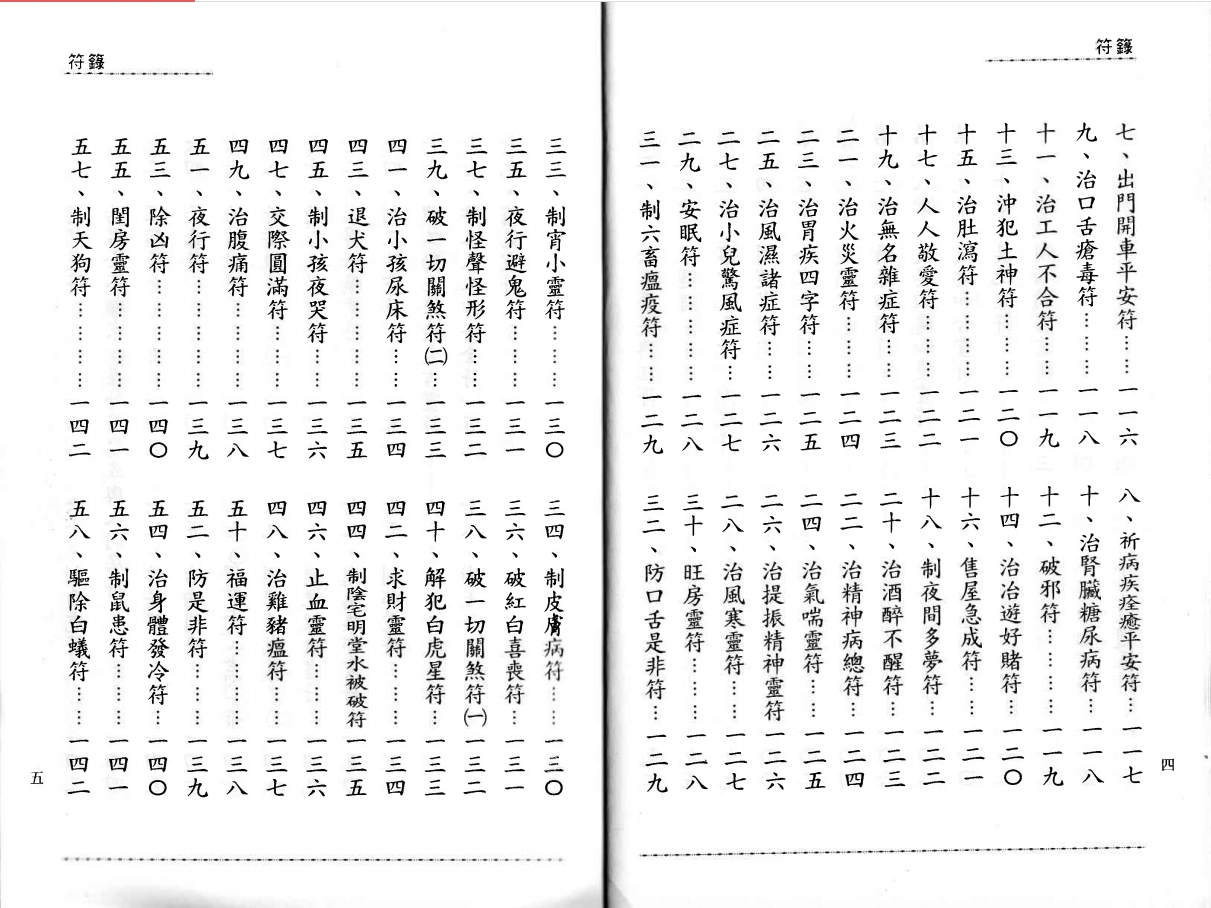 符籙
七、出門開車平安符……一一六　八、祈病疾痊癒平安符…一一七
九、治口舌瘡毒符………一一八　十、治腎臟糖尿病符……一一八
十一、治工人不合符……一一九　十二、破邪符……………一一九
十三、沖犯土神符………一二〇　十四、治冶遊好賭符……一二〇
十五、治肚瀉符…………一二一　十六、售屋急成符………一二一
十七、人人敬愛符………一二二　十八、制夜間多夢符……一二二
十九、治無名雜症符……一二三　二十、治酒醉不醒符……一二三
二一、治火災靈符………一二四　二二、治精神病總符……一二四
二三、治胃疾四字符……一二五　二四、治氣喘靈符………一二五
二五、治風濕諸症符……一二六　二六、治提振精神靈符一二六
二七、治小兒驚風症符…一二七　二八、治風寒靈符………一二七
二九、安眠符……………一二八　三十、旺房靈符…………一二八
三一、制六畜瘟疫符……一二九　三二、防口舌是非符……一二九
四
符籙
三三、制宵小靈符………一三〇　三四、制皮膚病符………一三〇
三五、夜行避鬼符………一三一　三六、破紅白喜喪符……一三一
三七、制怪聲怪形符……一三二　三八、破一切關煞符㈠一三二
三九、破一切關煞符㈡…一三三　四十、解犯白虎星符……一三三
四一、治小孩尿床符……一三四　四二、求財靈符…………一三四
四三、退犬符……………一三五　四四、制陰宅明堂水被破符一三五
四五、制小孩夜哭符……一三六　四六、止血靈符…………一三六
四七、交際圓滿符………一三七　四八、治雞豬瘟符………一三七
四九、治腹痛符…………一三八　五十、福運符……………一三八
五一、夜行符……………一三九　五二、防是非符…………一三九
五三、除凶符……………一四〇　五四、治身體發冷符……一四〇
五五、閨房靈符…………一四一　五六、制鼠患符…………一四一
五七、制天狗符…………一四二　五八、驅除白蟻符………一四二
五